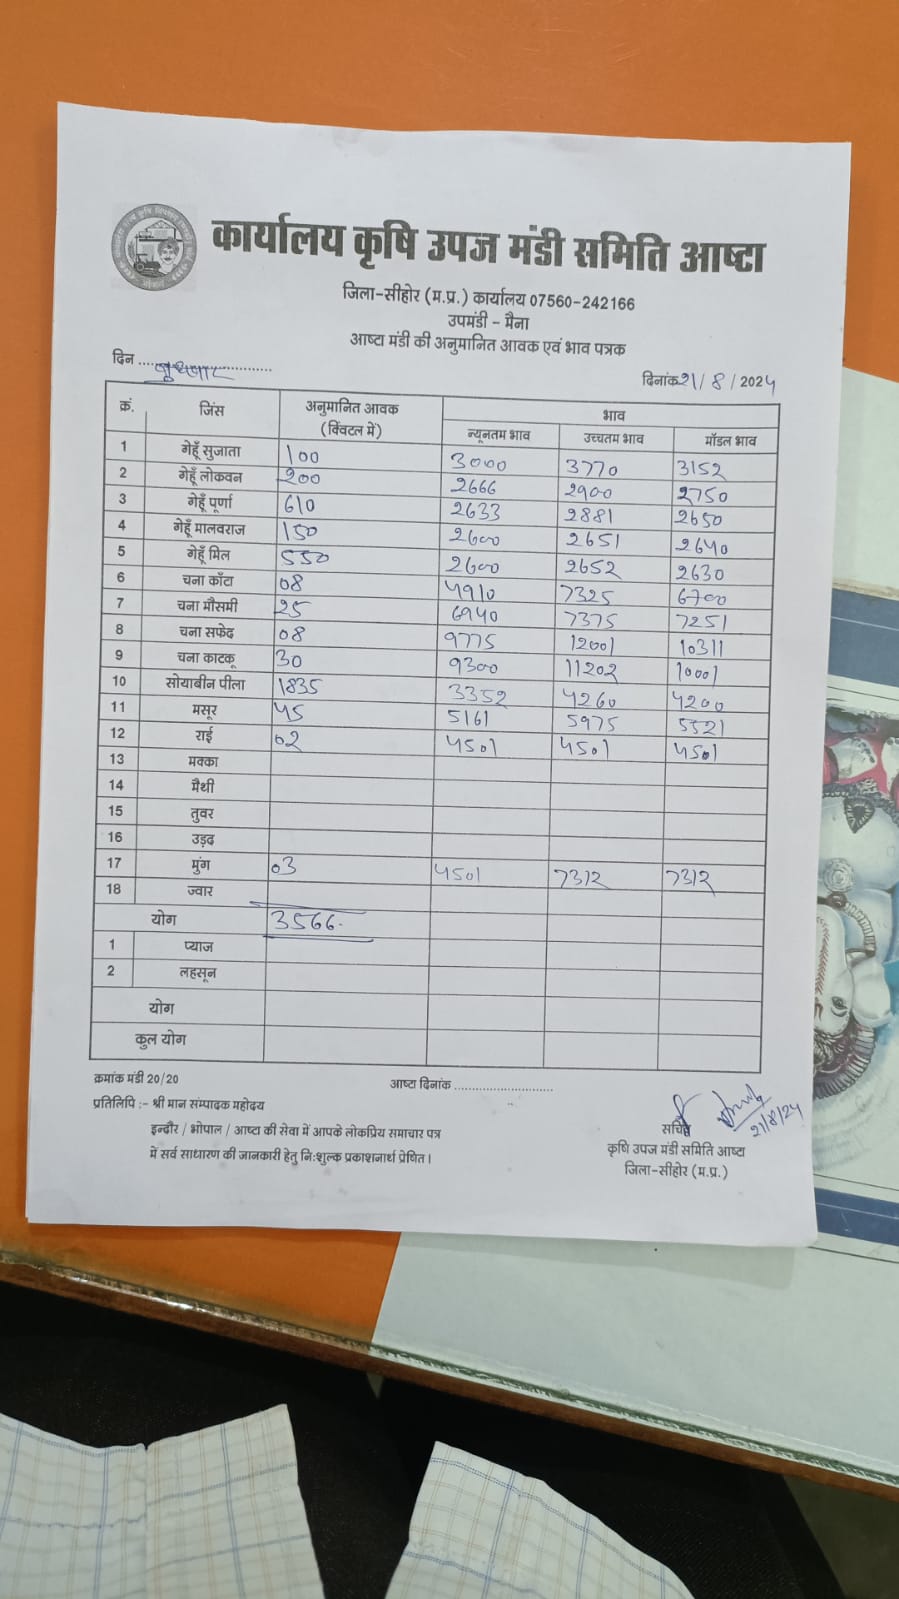 कार्यालय कृषि उपज मंडी समिति आष्टा
जिला-सीहोर (म.प्र.) कार्यालय 07560-242166
उपमंडी - मैना
आष्टा मंडी की अनुमानित आवक एवं भाव पत्रक
दिन .... बुधवार .... दिनांक 21/8/2024
क्रं. जिंस अनुमानित आवक (क्विंटल में) भाव
न्यूनतम भाव उच्चतम भाव मॉडल भाव
1 गेहूँ सुजाता 100 3000 3770 3152
2 गेहूँ लोकवन 200 2666 2900 2750
3 गेहूँ पूर्णा 610 2633 2881 2650
4 गेहूँ मालवराज 150 2600 2651 2640
5 गेहूँ मिल 550 2600 2652 2630
6 चना काँटा 08 4910 7325 6700
7 चना मौसमी 25 6940 7375 7251
8 चना सफेद 08 9775 12001 10311
9 चना काटकू 30 9300 11202 10001
10 सोयाबीन पीला 1835 3352 4260 4200
11 मसूर 45 5161 5975 5521
12 राई 02 4501 4501 4501
13 मक्का
14 मैथी
15 तुवर
16 उड़द
17 मुंग 03 4501 7312 7312
18 ज्वार
योग 3566.
1 प्याज
2 लहसून
योग
कुल योग
क्रमांक मंडी 20/20 आष्टा दिनांक ............................
प्रतिलिपि :- श्री मान सम्पादक महोदय
इन्दौर / भोपाल / आष्टा की सेवा में आपके लोकप्रिय समाचार पत्र
में सर्व साधारण की जानकारी हेतु नि:शुल्क प्रकाशनार्थ प्रेषित।
21/8/24
सचिव
कृषि उपज मंडी समिति आष्टा
जिला-सीहोर (म.प्र.)